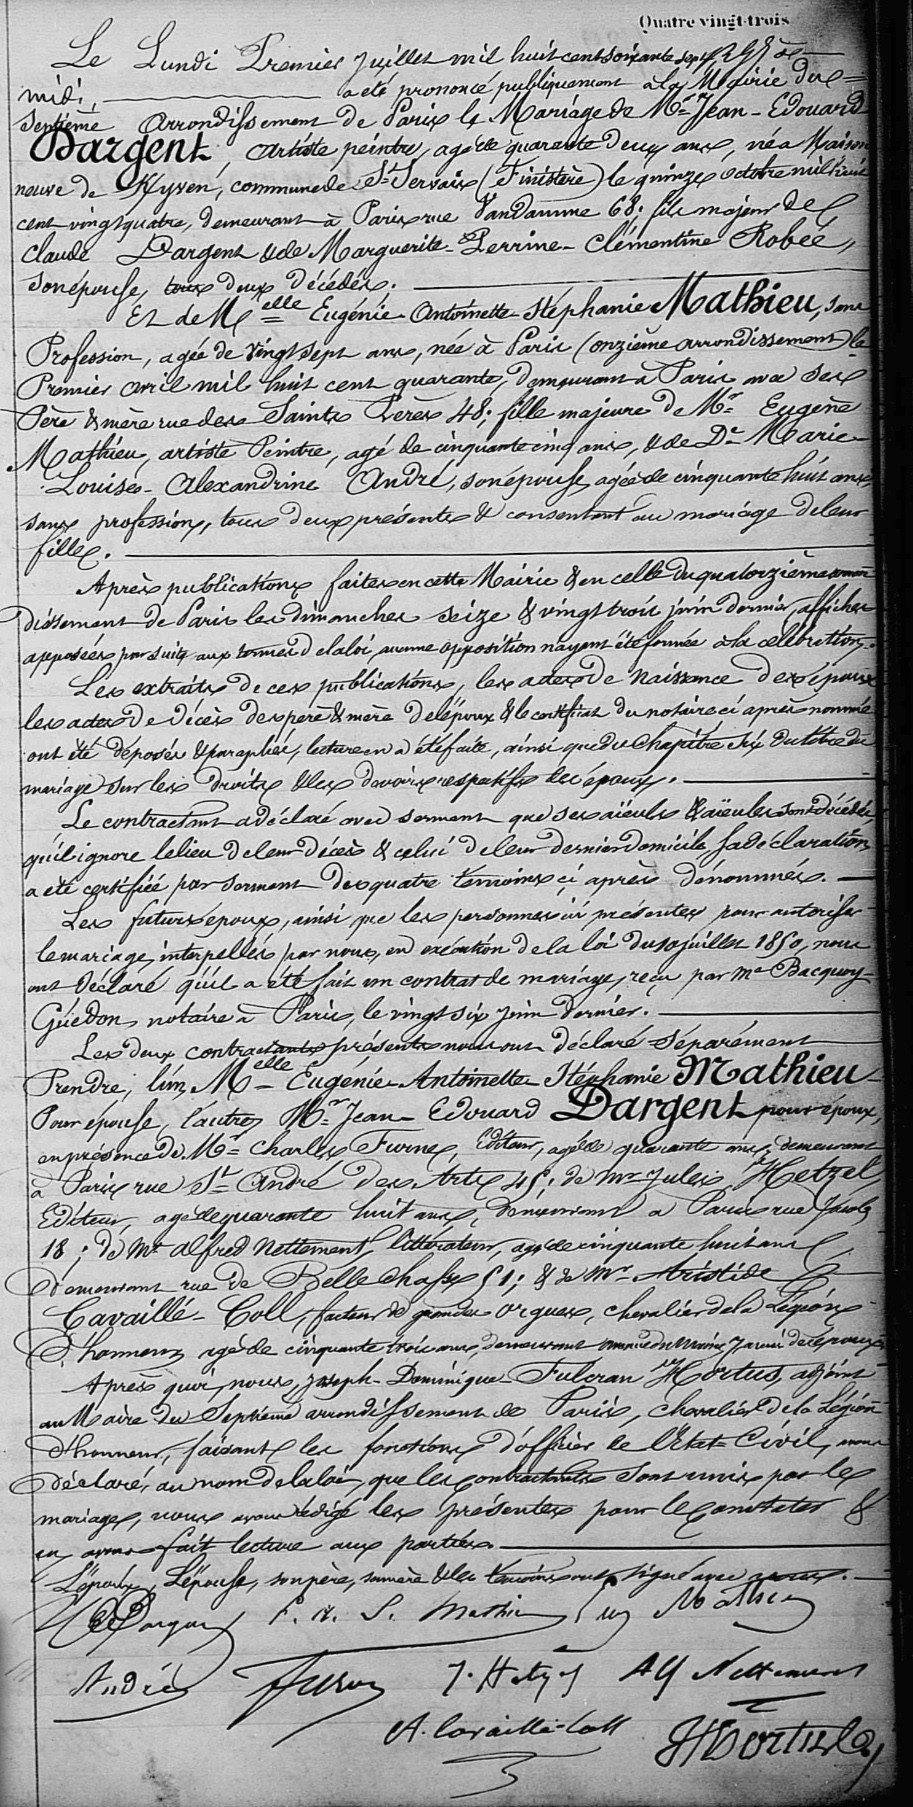 Quatre vingt-trois
Le Lundi Premier Juillet mil huit cent soixante sept à
midi, a été prononcé publiquement à la Mairie du
Septième Arrondissement de Paris le Mariage de Mr Jean-Edouard
Dargent, artiste peintre, agé de quarante deux ans, né à Maison
neuve de Kyven, commune de St Servais (Finistère) le quinze octobre mil huit
cent vingt quatre, demeurant à Paris rue Vandamme 68; fils majeur de
Claude Dargent & de Marguerite-Perrine-Clémentine Robée,
son épouse, tous deux décédés.
Et de Melle Eugénie-Antoinette-Stéphanie Mathieu, sans
Profession, agée de vingt sept ans, née à Paris (onzième arrondissement) le
Premier avril mil huit cent quarante, demeurant à Paris avec ses
Père & mère rue des Saints Pères 48; fille majeure de Mr Eugène
Mathieu, artiste Peintre, agé de cinquante cinq ans, & de De Marie-
Louise-Alexandrine André, son épouse, agée de cinquante huit ans,
sans profession, tous deux présents & consentant au mariage de leur
fille.
Après publications faites en cette Mairie & en celle du quatorzième arron
dissement de Paris les dimanches seize & vingt trois juin dernier, affiches
apposées par suite aux termes de la loi, aucune opposition n'ayant été formée à la célébration.
Les extraits de ces publications, les actes de Naissance des époux
les actes de Décès des père & mère de l'époux & le certificat du notaire ci après nommé
ont été déposés & paraphés, lecture en a été faite, ainsi que du Chapitre Six du titre du
mariage sur les droits & les devoirs respectifs des époux.
Le contractant a déclaré avec serment que ses aïeuls & aïeules sont décédés,
qu'il ignore le lieu de leur décès & celui de leur dernier domicile, sa déclaration
a été certifiée par serment des quatre témoins ci après dénommés.
Les futurs époux, ainsi que les personnes ici présentes pour autoriser
le mariage, interpellés par nous, en exécution de la loi du 10 juillet 1850, nous
ont déclaré qu'il a été fait un contrat de mariage, reçu par Me Bacquoy-
Guédon, notaire à Paris, le vingt six juin dernier.
Les deux contractants présents nous ont déclaré séparément
Prendre, l'un, Melle Eugénie-Antoinette-Stéphanie Mathieu
Pour épouse, l'autre, Mr Jean-Edouard Dargent pour époux,
en présence de Mr Charles Furne, Editeur, agé de quarante ans, demeurant
à Paris rue St André des Arts 45; de Mr Jules Hetzel,
Editeur, agé de quarante huit ans, demeurant à Paris rue Jacob
18; de Mr Alfred Nettement, littérateur, agé de cinquante huit ans
demeurant rue de Bellechasse 51; & de Mr Aristide
Cavaillé-Coll, facteur de grandes orgues, chevalier de la Légion
d'honneur, agé de cinquante trois ans, demeurant avenue du Maine,
Après quoi, nous, Joseph-Dominique-Fulcran Hortus, adjoint
au Maire du Septième arrondissement de Paris, chevalier de la Légion
d'honneur, faisant les fonctions d'officier de l'Etat-Civil, avons
déclaré, au nom de la loi, que les contractants sont unis par le
mariage, nous avons rédigé les présentes pour le constater &
en avons fait lecture aux parties.
L'époux, l'épouse, son père, sa mère & les témoins ont signé avec nous.
E Dargent E. A. S. Mathieu Eug Mathieu
André Furne J. Hetzel Alf Nettement
A. Cavaillé-Coll
Hortus